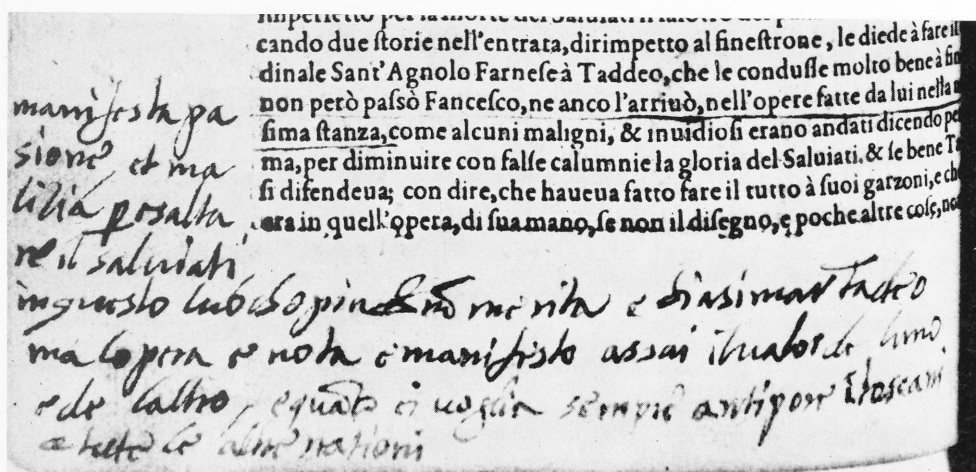 imperfetto per la morte del Saluiati
cando due ſtorie nell'entrata,dirimpetto al fineſtrone, le diede à fare il
dinale Sant'Agnolo Farneſe à Taddeo,che le conduſſe molto bene à fin
non però paſsò Fanceſco,ne anco l'arriuò,nell'opere fatte da lui nella
ſima ſtanza,come alcuni maligni, & inuidioſi erano andati dicendo pe
ma,per diminuire con falſe calumnie la gloria del Saluiati. & ſe bene Ta
ſi difendeua; con dire,che haueua fatto fare il tutto à ſuoi garzoni,e che
era in quell'opera,di ſua mano,ſe non il diſegno,e poche altre coſe,no
manifesta pa
sione, et ma
litia p esalta
re il saluiati
in questo merita e biasimar Tadeo
ma lopera e nota e manifesto assai il ualor de luno
e de laltro, e quato ci uoglia sempre antipore i toscani
a tutte le altre nationi